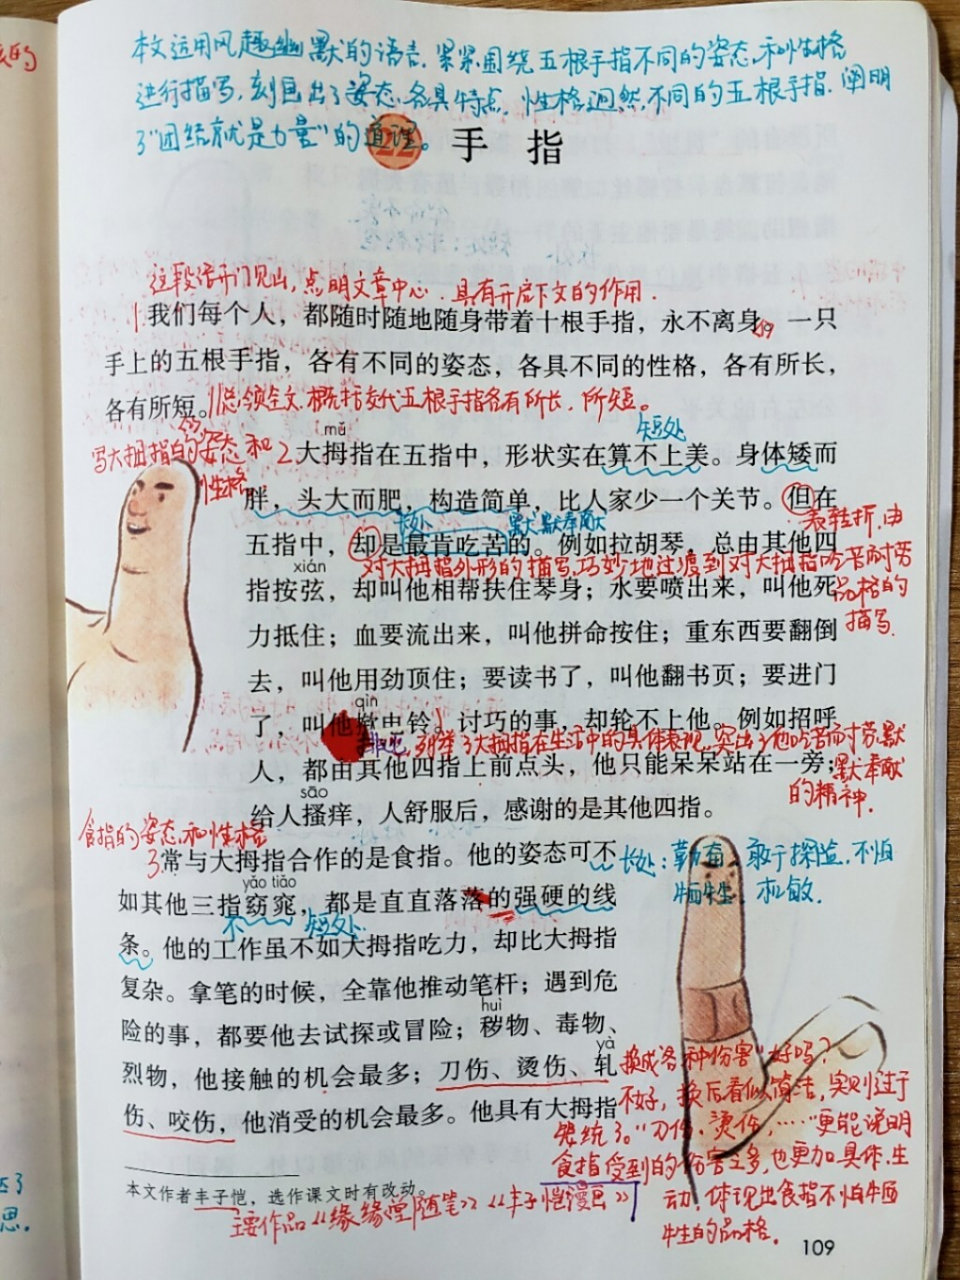 本文运用风趣幽默的语言,紧紧围绕五根手指不同的姿态和性格
进行描写,刻画出了姿态各具特点,性格迥然不同的五根手指,阐明
了"团结就是力量"的道理。
22 手 指
这段话开门见山,点明文章中心,具有开启下文的作用.
1.我们每个人,都随时随地随身带着十根手指,永不离身。一只
手上的五根手指,各有不同的姿态,各具不同的性格,各有所长,
各有所短。总领全文,概括交代五根手指各有所长,所短。
短处
写大拇指的姿态和
性格
mǔ
2.大拇指在五指中,形状实在算不上美。身体矮而
胖,头大而肥,构造简单,比人家少一个关节。但在
长处 默默奉献
表转折,由
五指中,却是最肯吃苦的。例如拉胡琴,总由其他四
对大拇指外形的描写,巧妙地过渡到对大拇指吃苦耐劳
品格的
描写.
xián
指按弦,却叫他相帮扶住琴身;水要喷出来,叫他死
力抵住;血要流出来,叫他拼命按住;重东西要翻倒
去,叫他用劲顶住;要读书了,叫他翻书页;要进门
qìn
了,叫他揿电铃。讨巧的事,却轮不上他。例如招呼
排比,列举了大拇指在生活中的具体表现,突出了他吃苦耐劳,默
默奉献
的精神.
人,都由其他四指上前点头,他只能呆呆站在一旁;
sāo
给人搔痒,人舒服后,感谢的是其他四指。
食指的姿态和性格
3常与大拇指合作的是食指。他的姿态可不
长处:勤奋、敢于探险、不怕
牺牲、机敏.
yǎo tiǎo
如其他三指窈窕,都是直直落落的强硬的线
不 短处
条。他的工作虽不如大拇指吃力,却比大拇指
复杂。拿笔的时候,全靠他推动笔杆;遇到危
huì
险的事,都要他去试探或冒险;秽物、毒物、
yà
烈物,他接触的机会最多;刀伤、烫伤、轧
伤、咬伤,他消受的机会最多。他具有大拇指
换成"各种伤害"好吗?
不好,换后看似简洁,实则过于
笼统了。"刀伤、烫伤,……"更能说明
食指受到的伤害之多,也更加具体、生
动,体现出食指不怕牺
牲的品格.
本文作者丰子恺,选作课文时有改动。
主要作品《缘缘堂随笔》《丰子恺漫画》
109